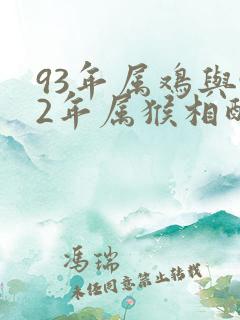 93年属鸡与
2年属猴相配
冯瑞
未经同意禁止转载